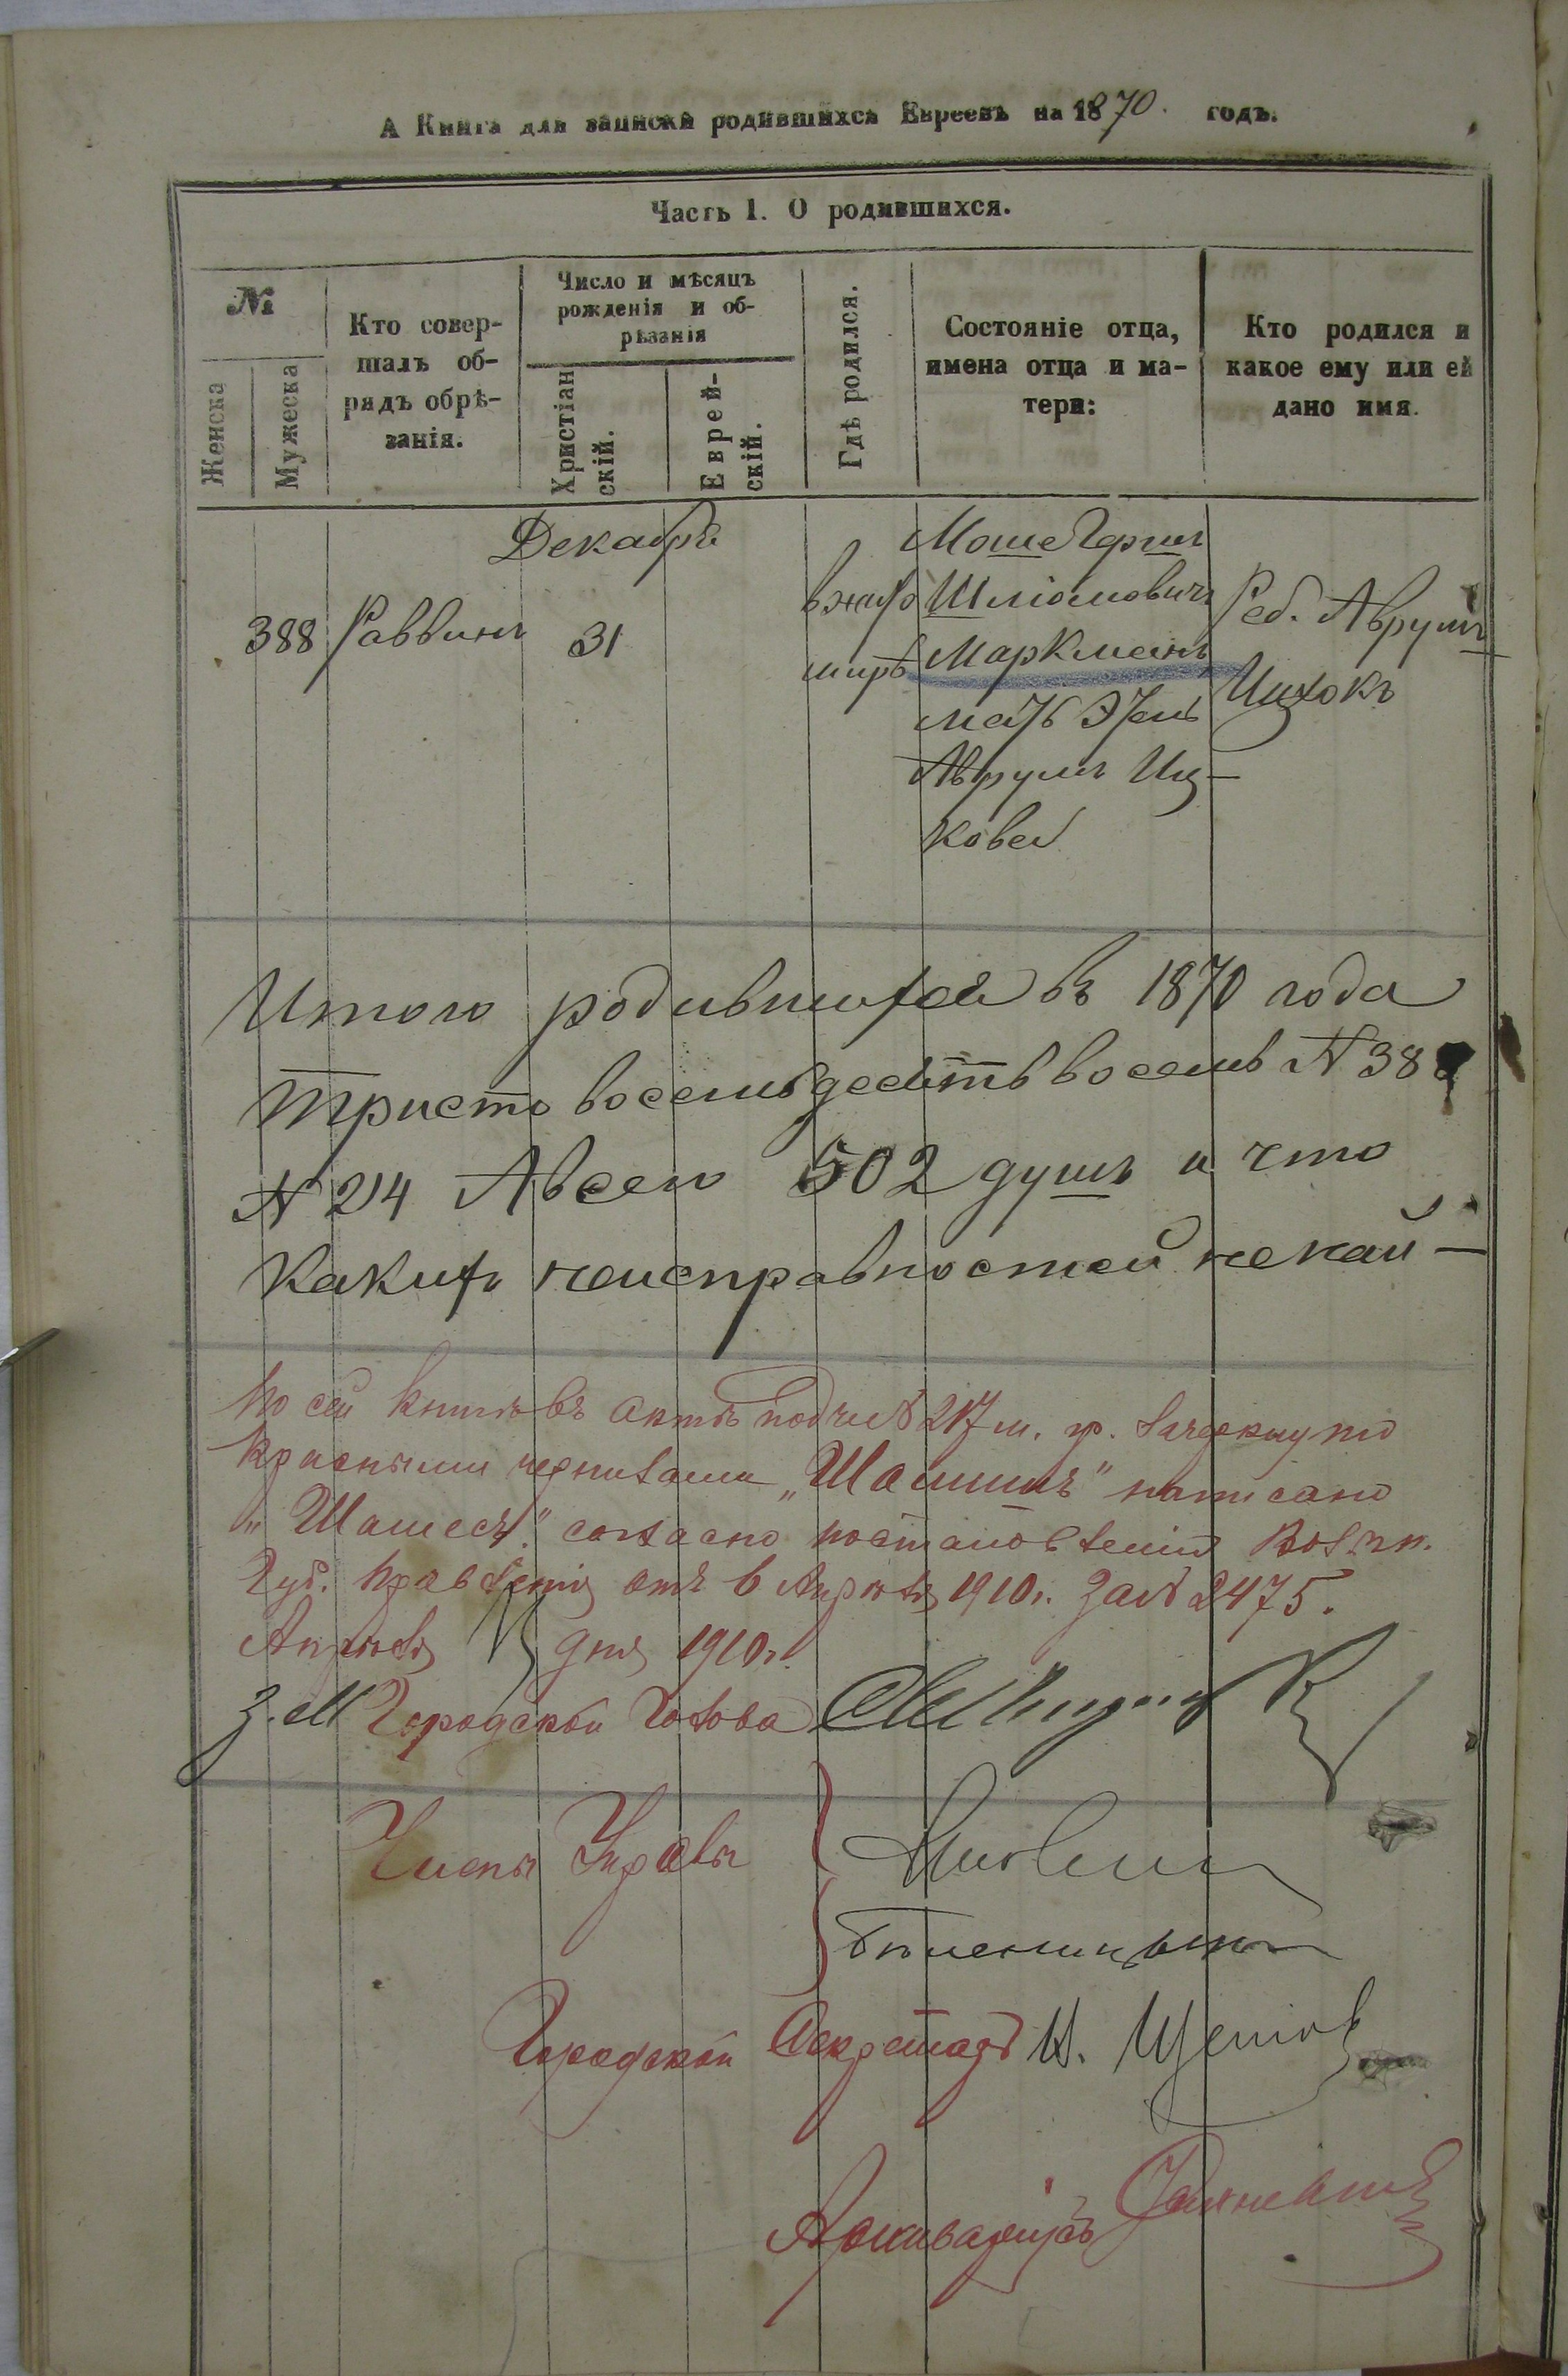 А Книга для записки родившихся Евреевъ на 1870. годъ.
Часть 1. О родившихся.
№
Женска
Мужеска
Кто совер-
шалъ об-
рядъ обрѣ-
занія.
Число и мѣсяцъ
рожденія и об-
рѣзанія
Христіан
скій.
Еврей-
скій.
Гдѣ родился.
Состояніе отца,
имена отца и ма-
тери:
Кто родился и
какое ему или ей
дано имя.
Декабрь
388 Раввинъ 31
в жито
мирѣ
Моше Герш
Шліомовичъ
Маркманъ
мать Этель
Аврумъ Иц-
кова
Реб. Аврумъ
Ицхокъ
Итого родившихся въ 1870 года
триста восемьдесятъ восемь № 388
№ 214 Авсего 502 душъ и что
какихъ неисправностей некаи-
По сей книгѣ въ актѣ подъ № 217 м. гр. зачеркнуто
красными чернилами „Шашинъ" написано
„Шамесъ." согласно постановленія Волын.
Губ. Правленія отъ 6 Апрѣля 1910 г. за № 2475.
Апрѣля дня 1910 г.
З. М. Городской Голова
Члены Управы
Городской Секретарь И.
Архиваріусъ